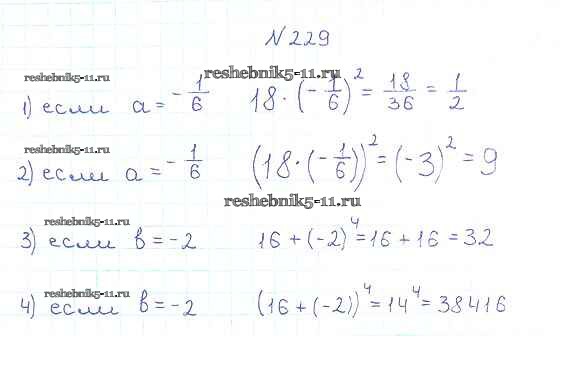 N 229
reshebnik5-11.ru reshebnik5-11.ru
1) если a = -1/6 18 · (-1/6)² = 18/36 = 1/2
reshebnik5-11.ru
2) если a = -1/6 (18 · (-1/6))² = (-3)² = 9
reshebnik5-11.ru
reshebnik5-11.ru
3) если b = -2 16 + (-2)⁴ = 16 + 16 = 32
reshebnik5-11.ru
4) если b = -2 (16 + (-2))⁴ = 14⁴ = 38416